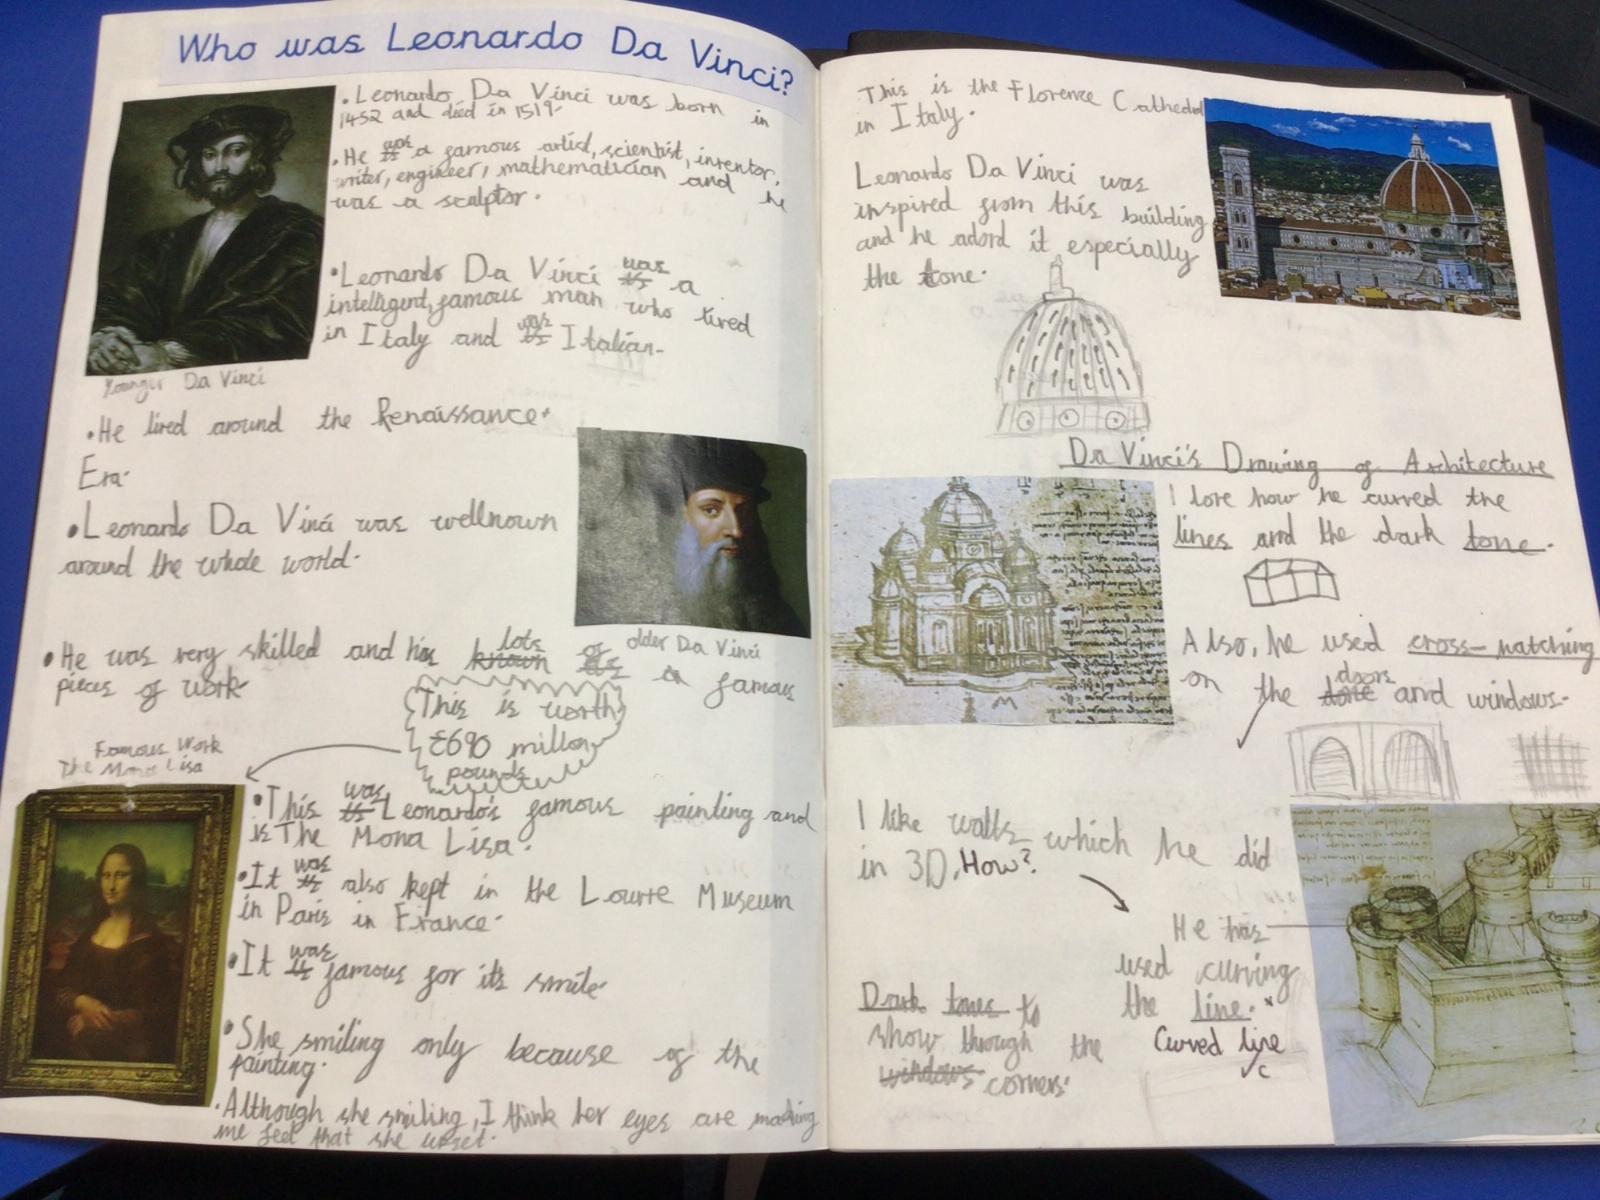 Who was Leonardo Da Vinci?
• Leonardo Da Vinci was born in
1452 and died in 1519.
• He was a famous artist, scientist, inventor,
writer, engineer, mathematician and he
was a sculptor.
• Leonardo Da Vinci was a
intelligent, famous man who lived
in Italy and was Italian.
Younger Da Vinci
• He lived around the Renaissance
Era.
• Leonardo Da Vinci was wellnown
around the whole world.
older Da Vinci
• He was very skilled and has lots of famous
pieces of work
This is worth
£690 millon
pounds
Famous Work
The Mona Lisa
• This was Leonardo's famous painting and
is The Mona Lisa.
• It was also kept in the Louvre Museum
in Paris in France.
• It was famous for it's smile.
• She smiling only because of the
painting.
• Although she smiling, I think her eyes are making
me feel that she upset.
This is the Florence Cathedal
in Italy.
Leonardo Da Vinci was
inspired from this building
and he adord it especially
the tone.
Da Vinci's Drawing of Architecture
I love how he curved the
lines and the dark tone.
Also, he used cross-hatching
on the doors and windows.
I like walls which he did
in 3D. How?
He has
used curving
the line. *
Curved line
Dark tones to
show through the
windows corners.